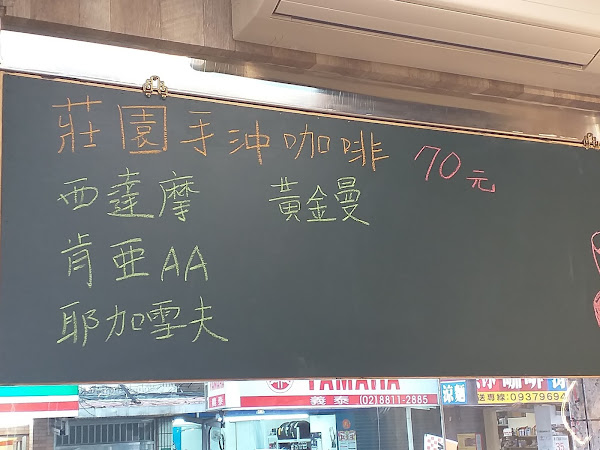 莊園手沖咖啡 70元
西達摩 黃金曼
肯亞AA
耶加雪夫
YAMAHA
義泰 (02)8811-2815
涼麵
咖啡
送專線:09379694